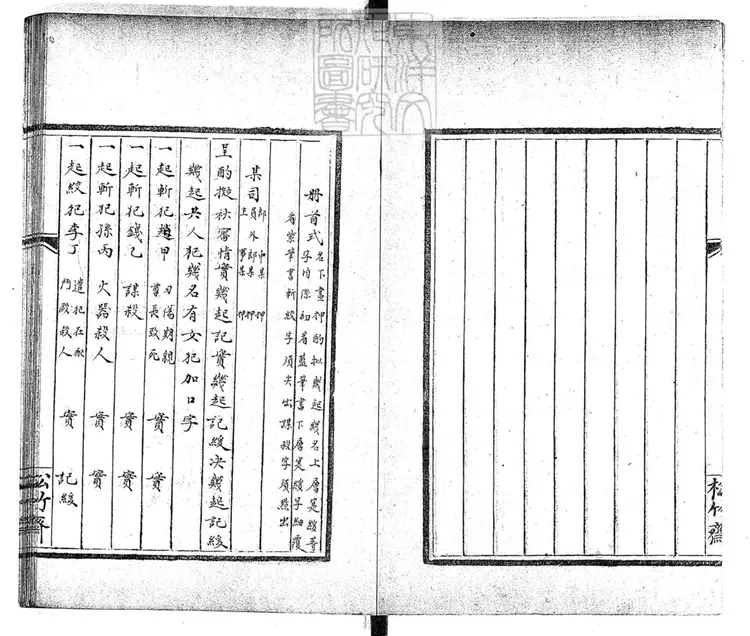 松竹齋
册首式
名下畫押酌拟幾起幾名上層是緩
字均係初看藍筆書下層是緩字細
看紫筆書斬絞字須尖出謀殺字須點出
某司
郎中某押
員外郎某押
主事某押
呈酌擬秋審情實幾起記實幾起記緩决幾起記緩
幾起共人犯幾名有女犯加口字
一起斬犯趙甲 刃傷期親尊長致死 實 實
一起斬犯錢乙 謀殺 實 實
一起斬犯孫丙 火器殺人 實 實
一起絞犯李丁 遣犯在配鬥毆殺人 實 記緩
松竹齋